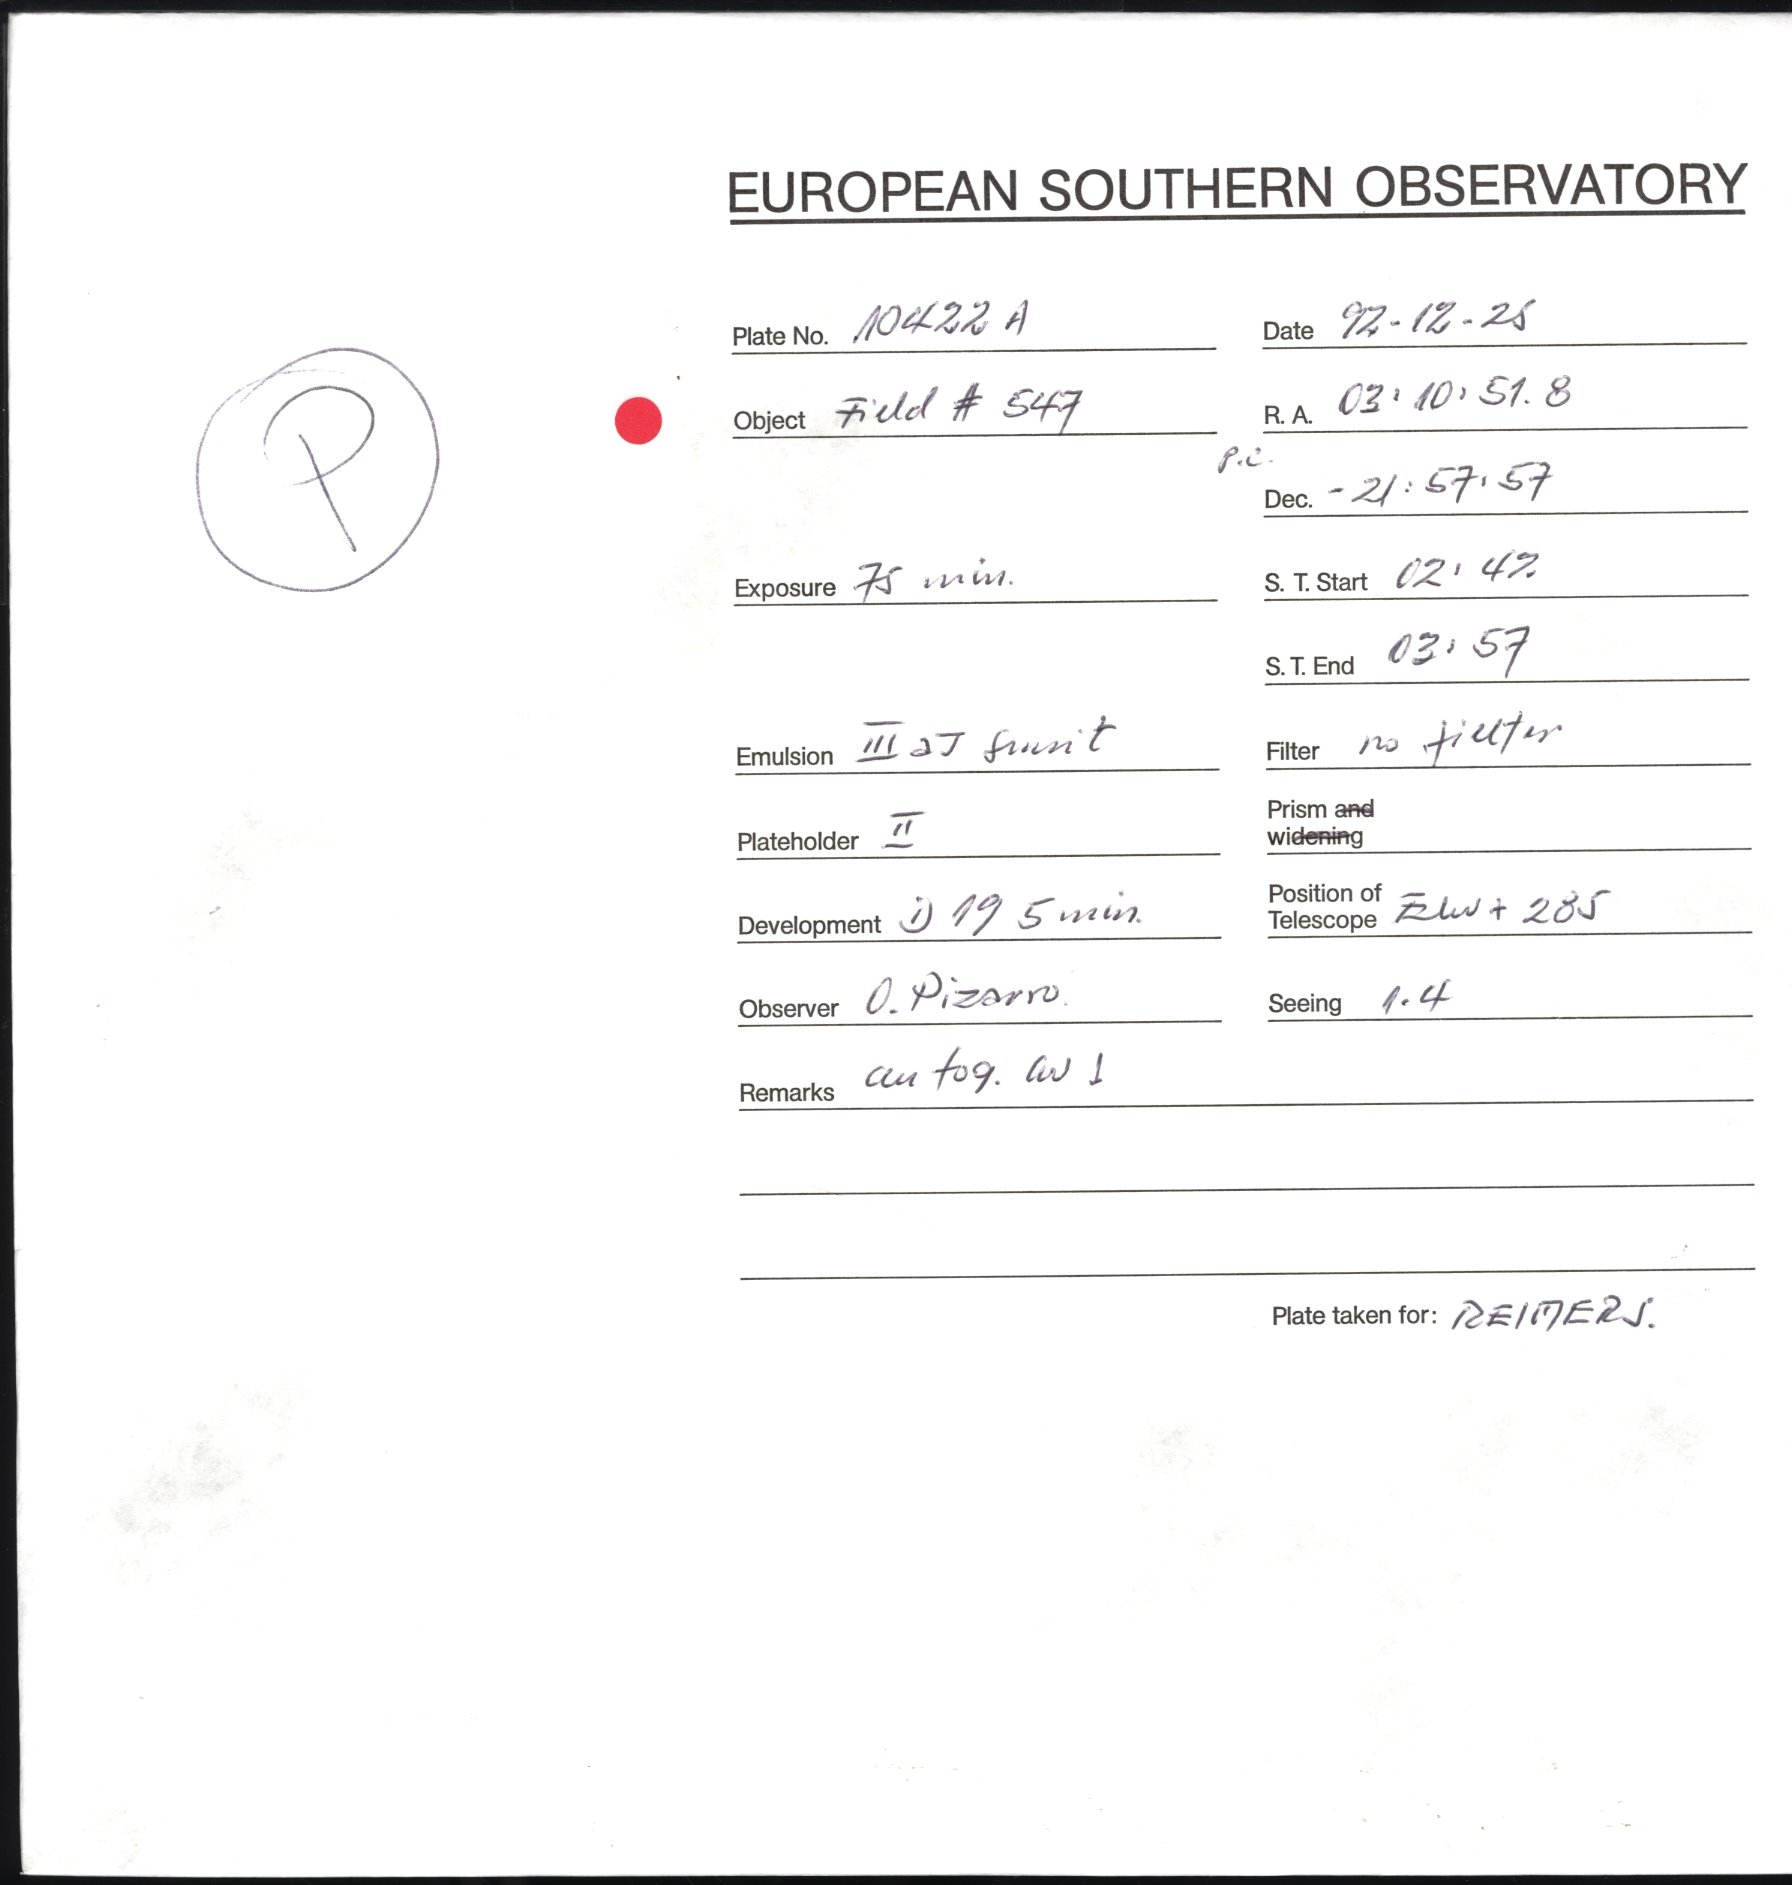 EUROPEAN SOUTHERN OBSERVATORY
Plate No. 10422 A Date 92-12-25
Object Field # 547 R. A. 03:10:51.8
P
p.c.
Dec. -21:57:57
Exposure 75 min. S. T. Start 02:42
S. T. End 03:57
Emulsion III aJ Filter no fielter
Plateholder II Prism and widening
Development i) 19 5 min. Position of Telescope + 285
Observer O. Pizarro. Seeing 1.4
Remarks
Plate taken for: REIMERS.